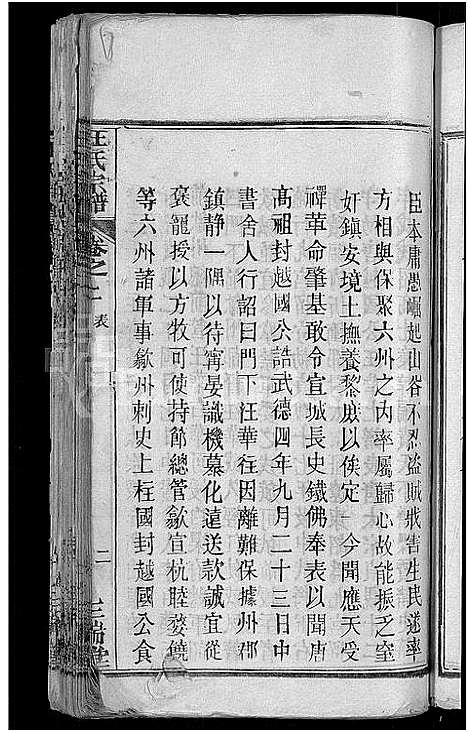 臣本庸愚崛起山谷不忍盜賊戕害生民遂率
方相與保聚六州之內率屬歸心故能振乏窒
奸鎮安境土撫養黎庶以俟定一今聞應天受
禪革命肇基敢令宣城長史鐵佛奉表以聞唐
高祖封越國公誥武德四年九月二十三日中
書舍人行詔曰門下汪華往因離難保據州郡
鎮静一隅以待寧晏識機慕化遠送款誠宜從
褒寵授以方牧可使持節總管歙宣杭睦婺饒
等六州諸軍事歙州刺史上柱國封越國公食
汪氏宗譜
卷之一
表
二
三瑞堂